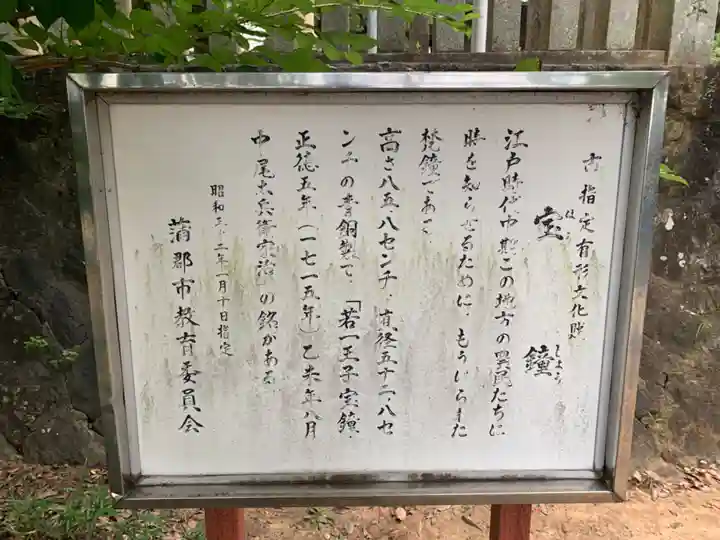 市指定有形文化財
宝鐘
ほう
しょう
江戸時代中期この地方の農民たちに
時を知らせるために、もうけられた
梵鐘であって
高さ八五・八センチ、直径五十二・八セ
ンチの青銅製で、「若一王子宝鐘、
正徳五年(一七一五年)乙未年八月
中尾太兵衛家治」の銘がある。
昭和三十二年一月十日指定
蒲郡市教育委員会